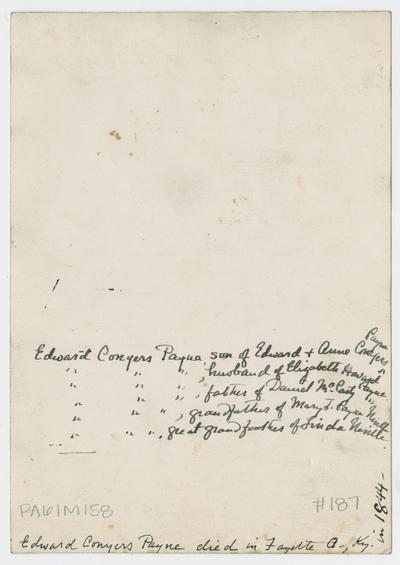 Edward Conyers Payne, son of Edward + Anne Conyers Payne
" " " , husband of Elizabeth Howard Payne
" " " , father of Daniel McCarty "
" " " , grandfather of Mary F. Payne Neville
" " " , great grandfather of Linda Neville.
PA61M158
#187
Edward Conyers Payne died in Fayette Co., Ky. in 1844-